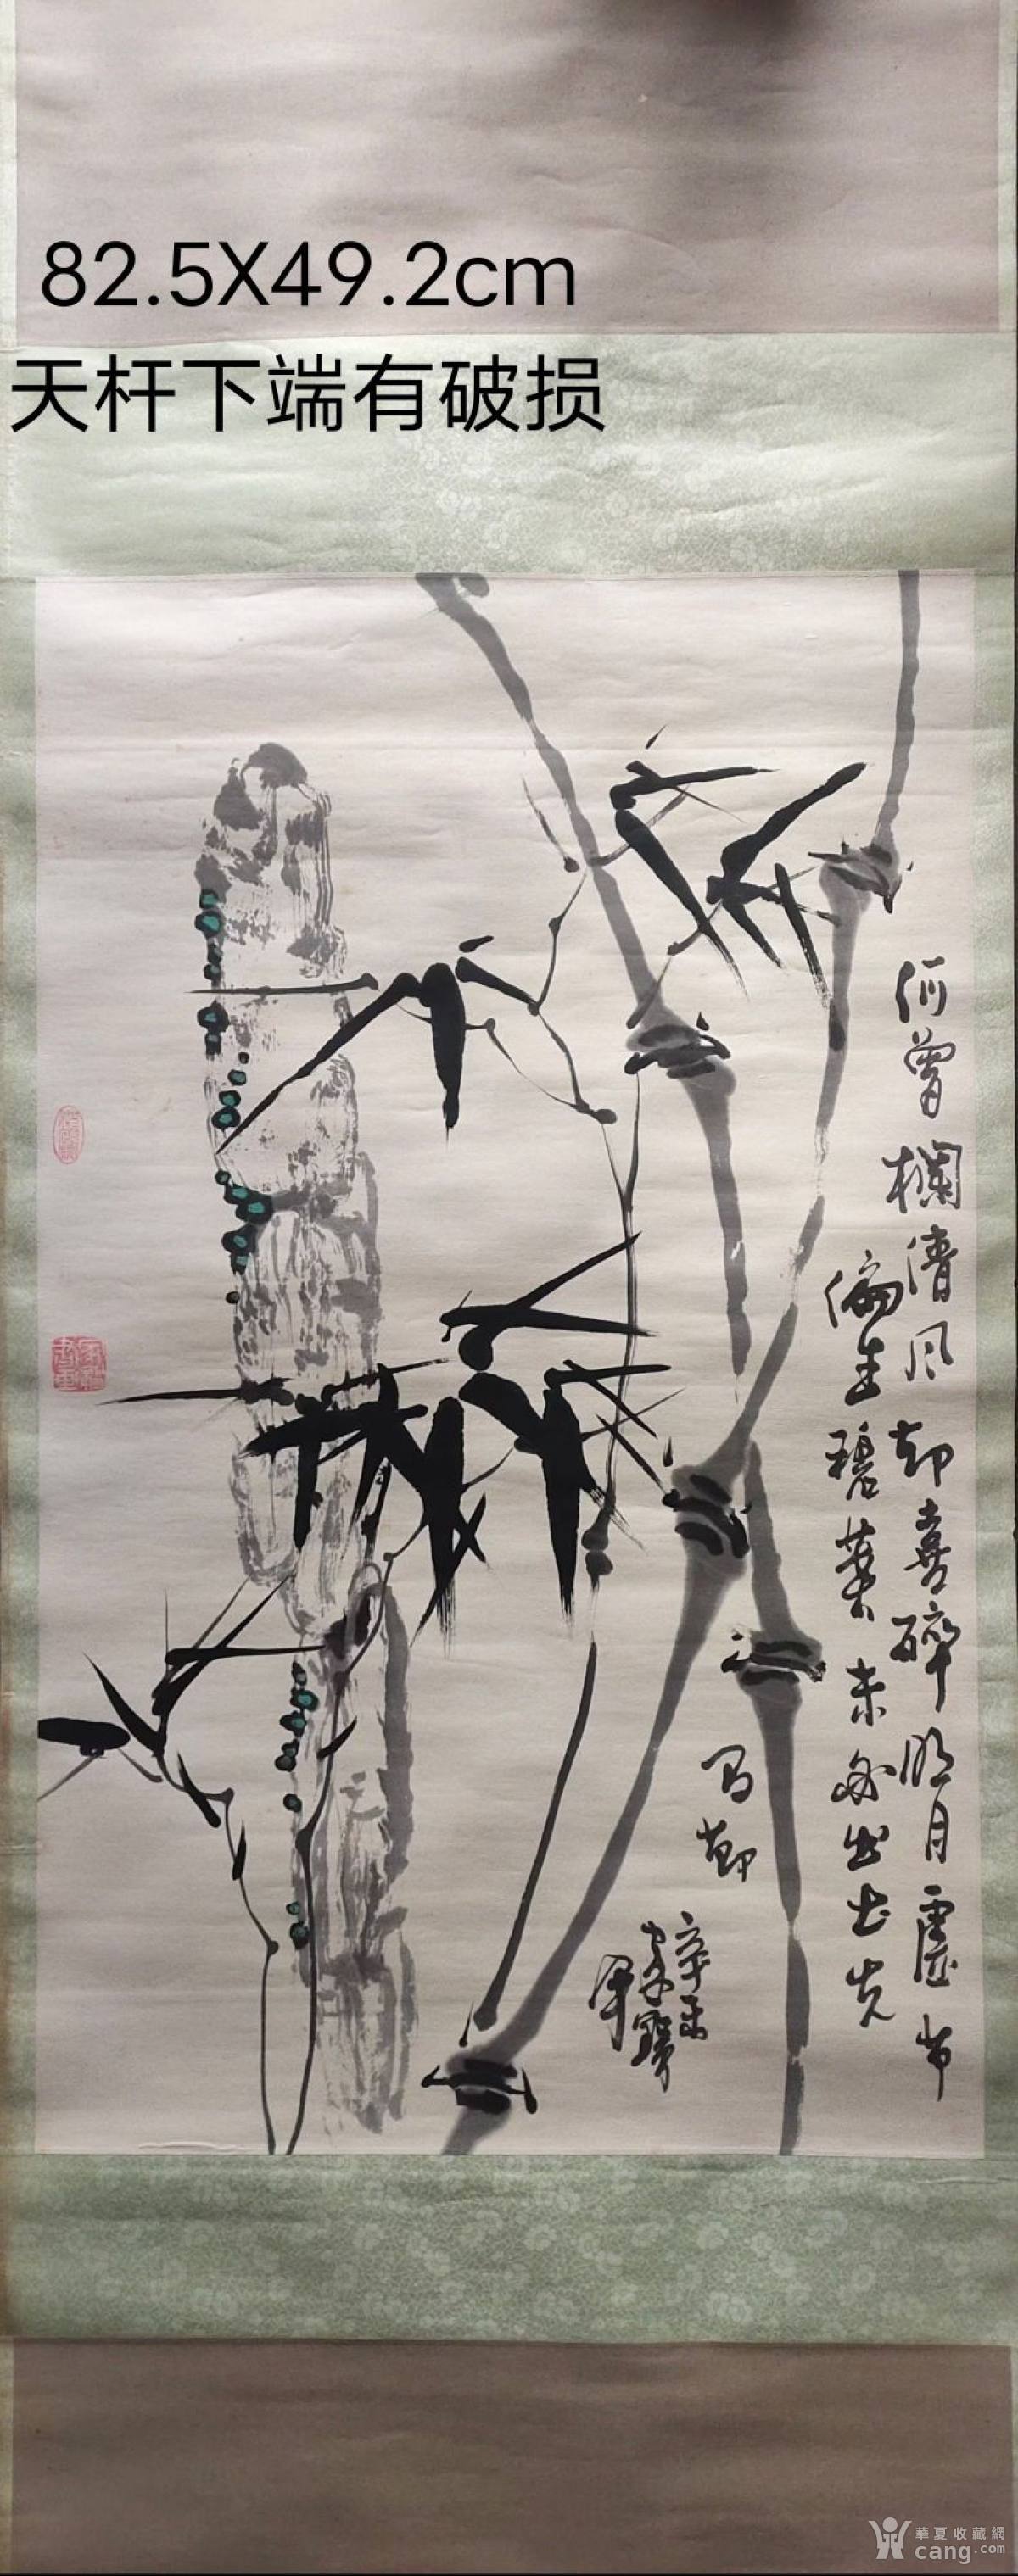 82.5X49.2cm
天杆下端有破损
何曾欄清風却喜碎明月虛节
偏生碧葉未必出土先
有節
辛
華夏收藏網
cang.com